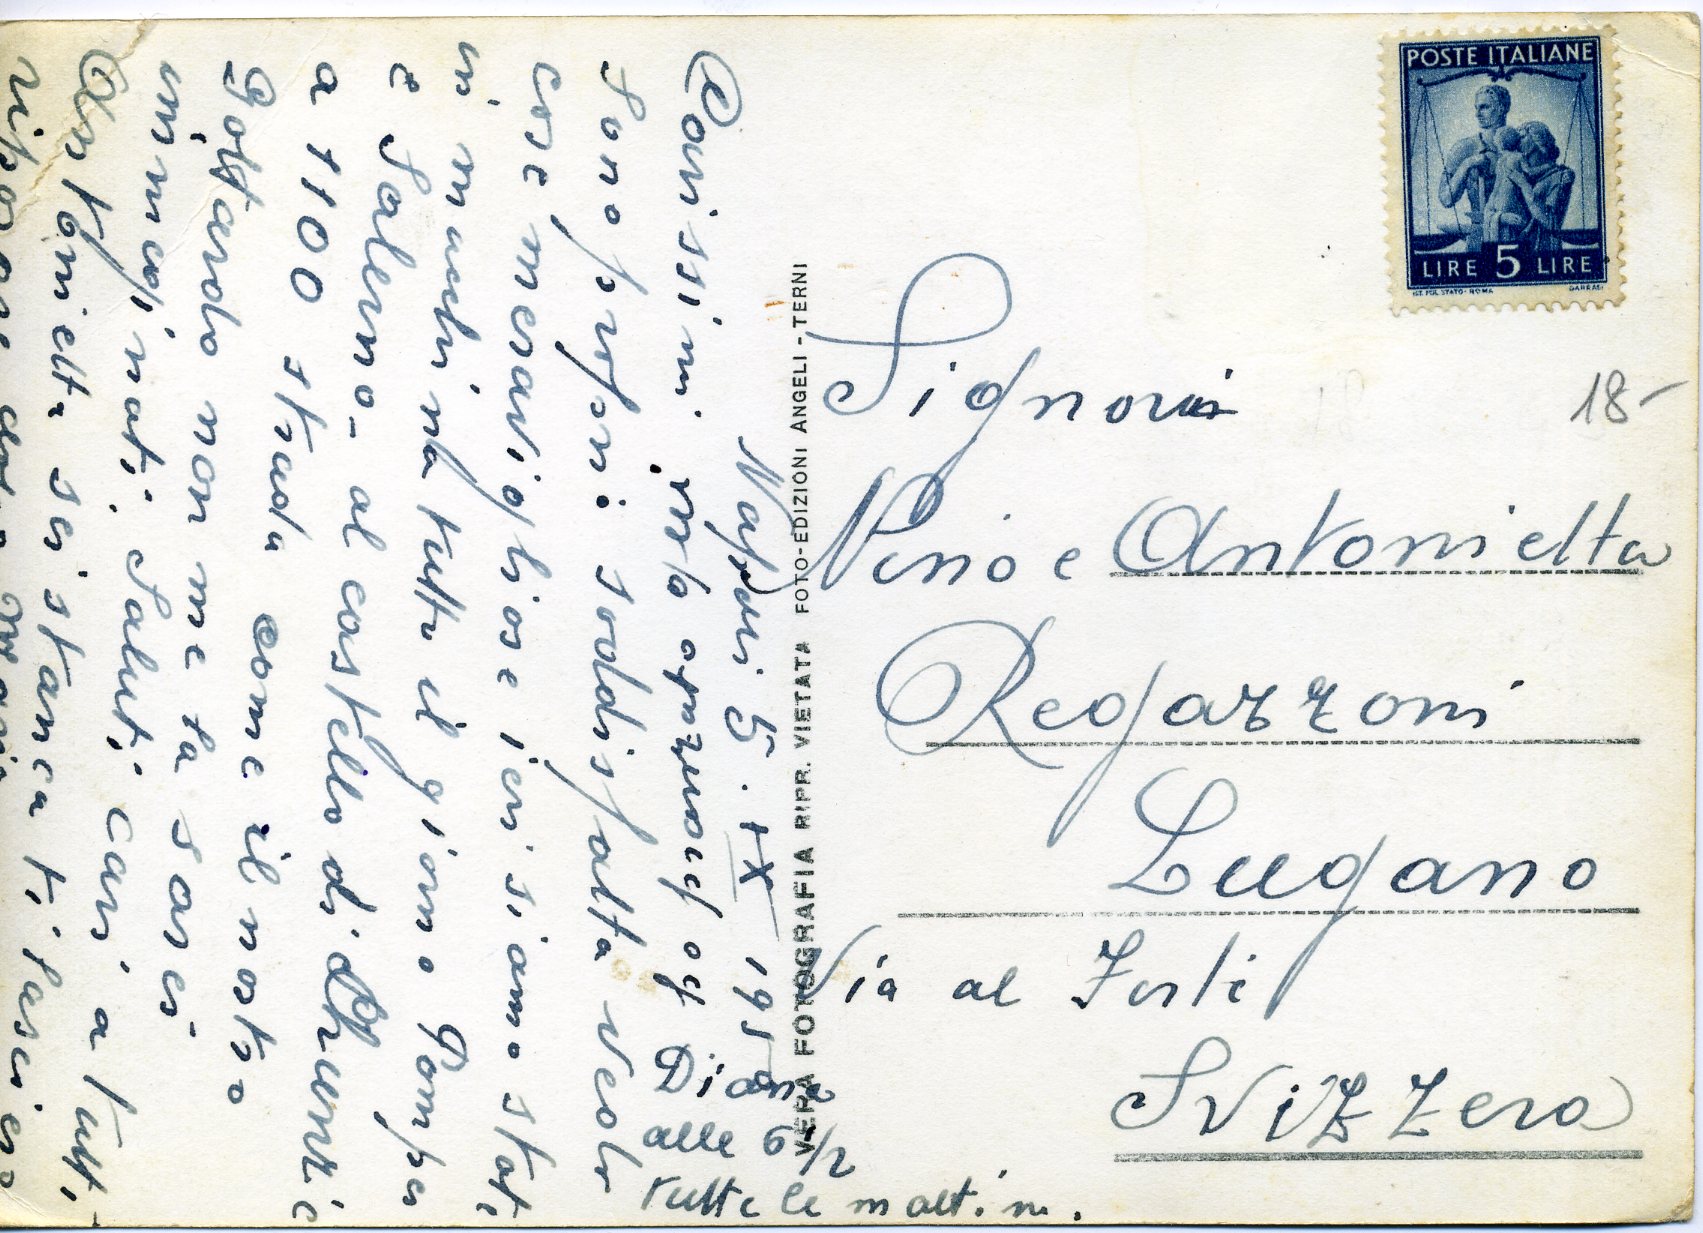 POSTE ITALIANE
LIRE 5 LIRE
IST. POL. STATO - ROMA
GARRASI
18-
Signori
Nino e Antonietta
Regazzoni
Lugano
Via al Forte
Svizzera
VERA FOTOGRAFIA RIPR. VIETATA FOTO-EDIZIONI ANGELI - TERNI
Napoli 5. IX 1950
Carissimi
Sono proprio soddisfatta vedo
cose meravigliose ieri siamo stati
in machina tutto il giorno Pompei
e Salerno - al castello di
a 1100 strada come il nostro
Gottardo non me la sarei
immaginati. Saluti cari a tutti
Antonietta sei stanca ti lascierò
riposare
Diana
alle 6 1/2
tutte le mattine.